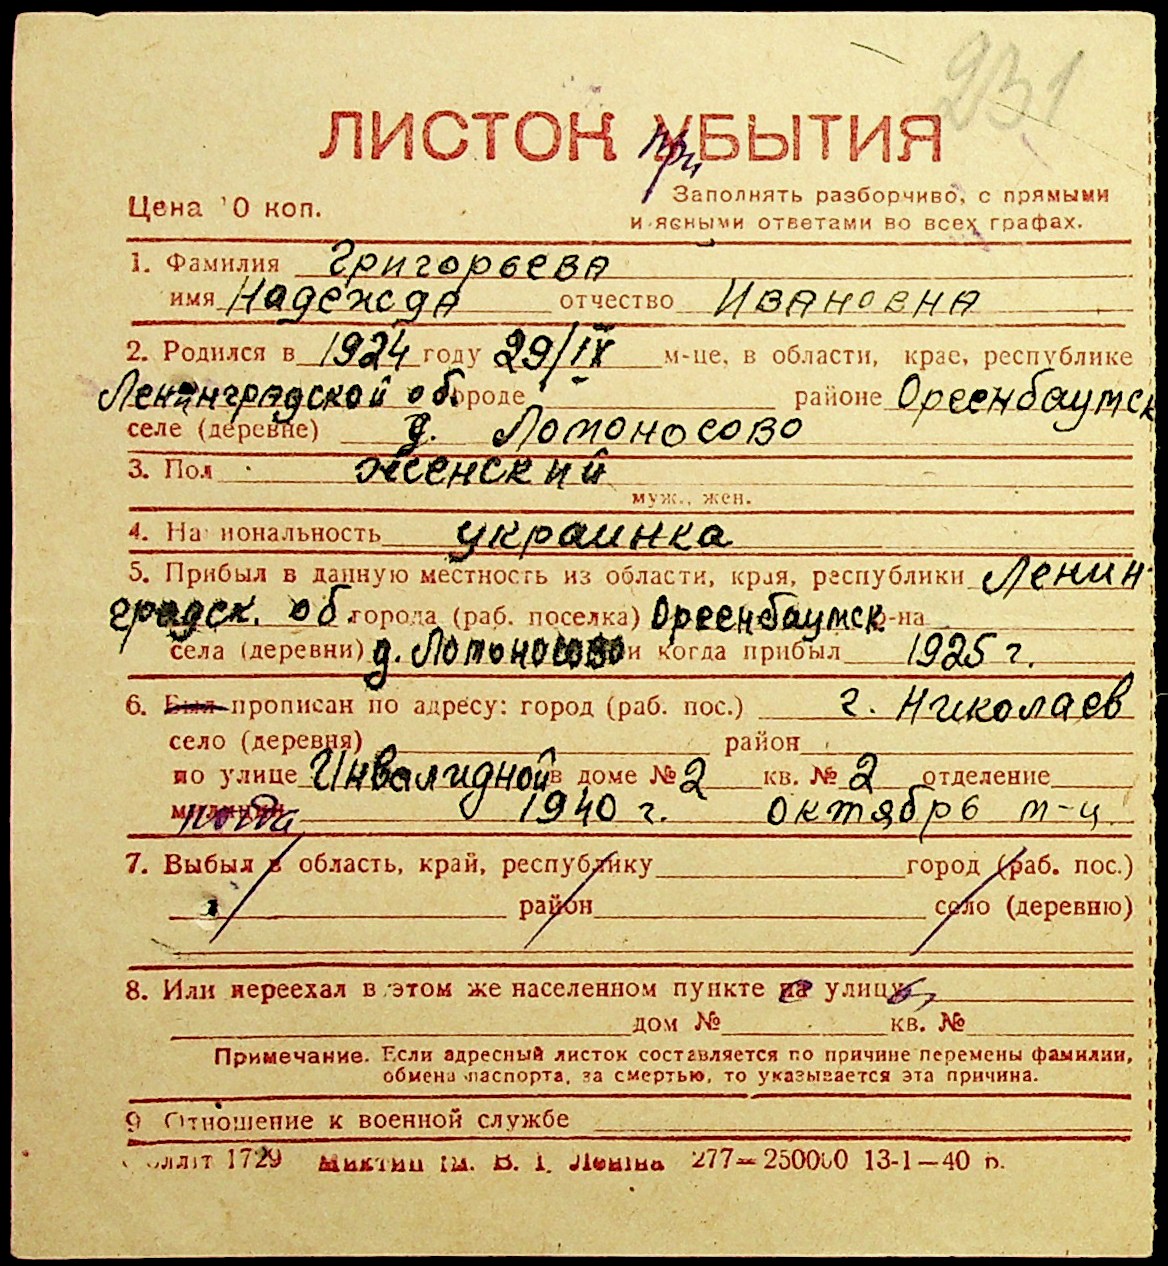 231
ЛИСТОК УБЫТИЯ
при
Цена 0 коп.
Заполнять разборчиво, с прямыми
и ясными ответами во всех графах.
1. Фамилия Григорьева
имя Надежда отчество Ивановна
2. Родился в 1924 году 29/IX м-це, в области, крае, республике
Ленинградской об. городе районе Ореенбаумск
селе (деревне) д. Ломоносово
3. Пол женский
муж., жен.
4. Национальность украинка
5. Прибыл в данную местность из области, края, республики Ленин-
градск. об. города (раб. поселка) Ореенбаумск р-на
села (деревни) д. Ломоносово и когда прибыл 1925 г.
6. Был прописан по адресу: город (раб. пос.) г. Николаев
село (деревня) район
по улице Инвалидной в доме № 2 кв. № 2 отделение
милиции когда 1940 г. октябрь м-ц.
7. Выбыл в область, край, республику город (раб. пос.)
район село (деревню)
8. Или переехал в этом же населенном пункте на улицу
дом № кв. №
Примечание. Если адресный листок составляется по причине перемены фамилии,
обмена паспорта, за смертью, то указывается эта причина.
9 Отношение к военной службе
1729 Миктип ім. В. І. Леніна 277—250000 13-1—40 р.